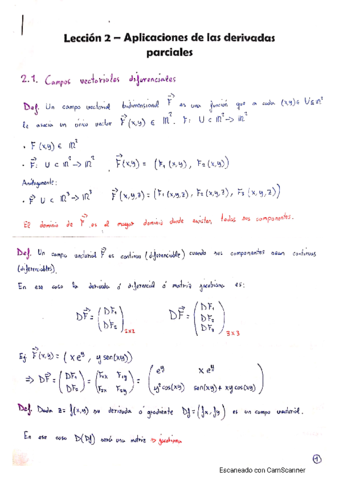 Lección 2 – Aplicaciones de las derivadas
parciales
2.1. Campos vectoriales diferenciales
Def. Un campo vectorial bidimensional F⃗ es una función que a cada (x,y) ∈ U ⊆ ℝ²
le asocia un único vector F⃗(x,y) ∈ ℝ². F: U ⊂ ℝ² → ℝ²
· F(x,y) ∈ ℝ²
· F⃗: U ⊂ ℝ² → ℝ² F⃗(x,y) = (F₁(x,y), F₂(x,y))
Análogamente:
· F⃗ U ⊂ ℝ³ → ℝ³ F⃗(x,y,z) = (F₁(x,y,z), F₂(x,y,z), F₃(x,y,z))
El dominio de F⃗ es el mayor dominio donde existen todas sus componentes.
Def. Un campo vectorial F⃗ es continuo (diferenciable) cuando sus componentes sean continuas
(diferenciables).
En ese caso la derivada ó diferencial ó matriz jacobiana es:
DF⃗ = (DF₁ DF₂)₂ₓ₂ DF⃗ = (DF₁ DF₂ DF₃)₃ₓ₃
Ej F⃗(x,y) = (x eʸ, y sen(xy))
⇒ DF⃗ = (DF₁ DF₂) = (F₁ₓ F₁y F₂ₓ F₂y) = (eʸ x eʸ
y² cos(xy) sen(xy) + xy cos(xy))
Def. Dada z = f(x,y) su derivada ó gradiente Df = (fx, fy) es un campo vectorial.
En ese caso D(Df) será una matriz → jacobiana
1
Escaneado con CamScanner